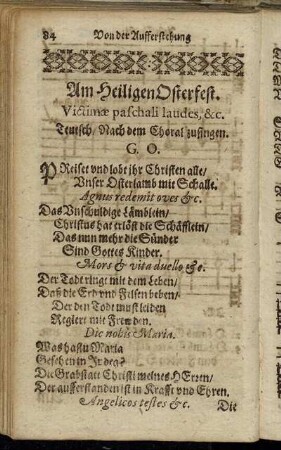 84 Von der Aufferstehung
Am Heiligen Osterfest.
Victimæ paschali laudes, &c.
Teutsch/ Nach dem Choral zusingen.
G. O.
PReiset vnd lobt ihr Christen alle/
Vnser Osterlamb mit Schalle.
Agnus redemit oves &c.
Das Vnschuldige Lämblein/
Christus hat erlöst die Schäfflein/
Das nun mehr die Sünder
Sind Gottes Kinder.
Mors & vita duello &c.
Der Todt ringt mit dem Leben/
Daß die Erd vnd Felsen beben/
Der den Todt must leiden
Regiert mit Frewden.
Dic nobis Maria.
Was hastu Maria
Gesehen in
Die Grabstatt Christi meines HErren/
Der aufferstanden ist in Krafft vnd Ehren.
Angelicos testes &c. Die